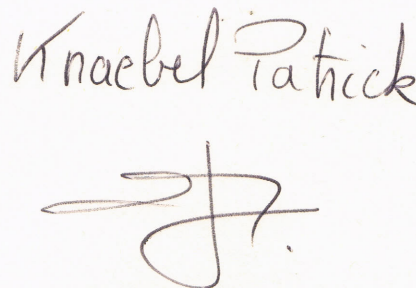 Knaebel Patrick